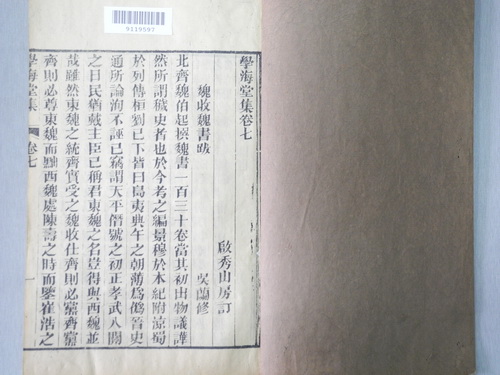 9119597
學海堂集卷七
啟秀山房訂
魏收魏書跋
吳蘭修
北齊魏伯起撰魏書一百三十卷當其初出物議譁
然所謂穢史者也於今考之編景穆於本紀附涼蜀
於列傳桓劉已下皆曰島夷典午之朝薄爲僞晉史
通所論洵不誣已竊謂天平僭號之初正孝武入關
之日民猶戴主臣已稱君東魏之名豈得與西魏並
哉雖然東魏之統齊實受之魏收仕齊則必黨齊黨
齊則必尊東魏而黜西魏處陳壽之時而鑒崔浩之
學海堂集
卷七
一